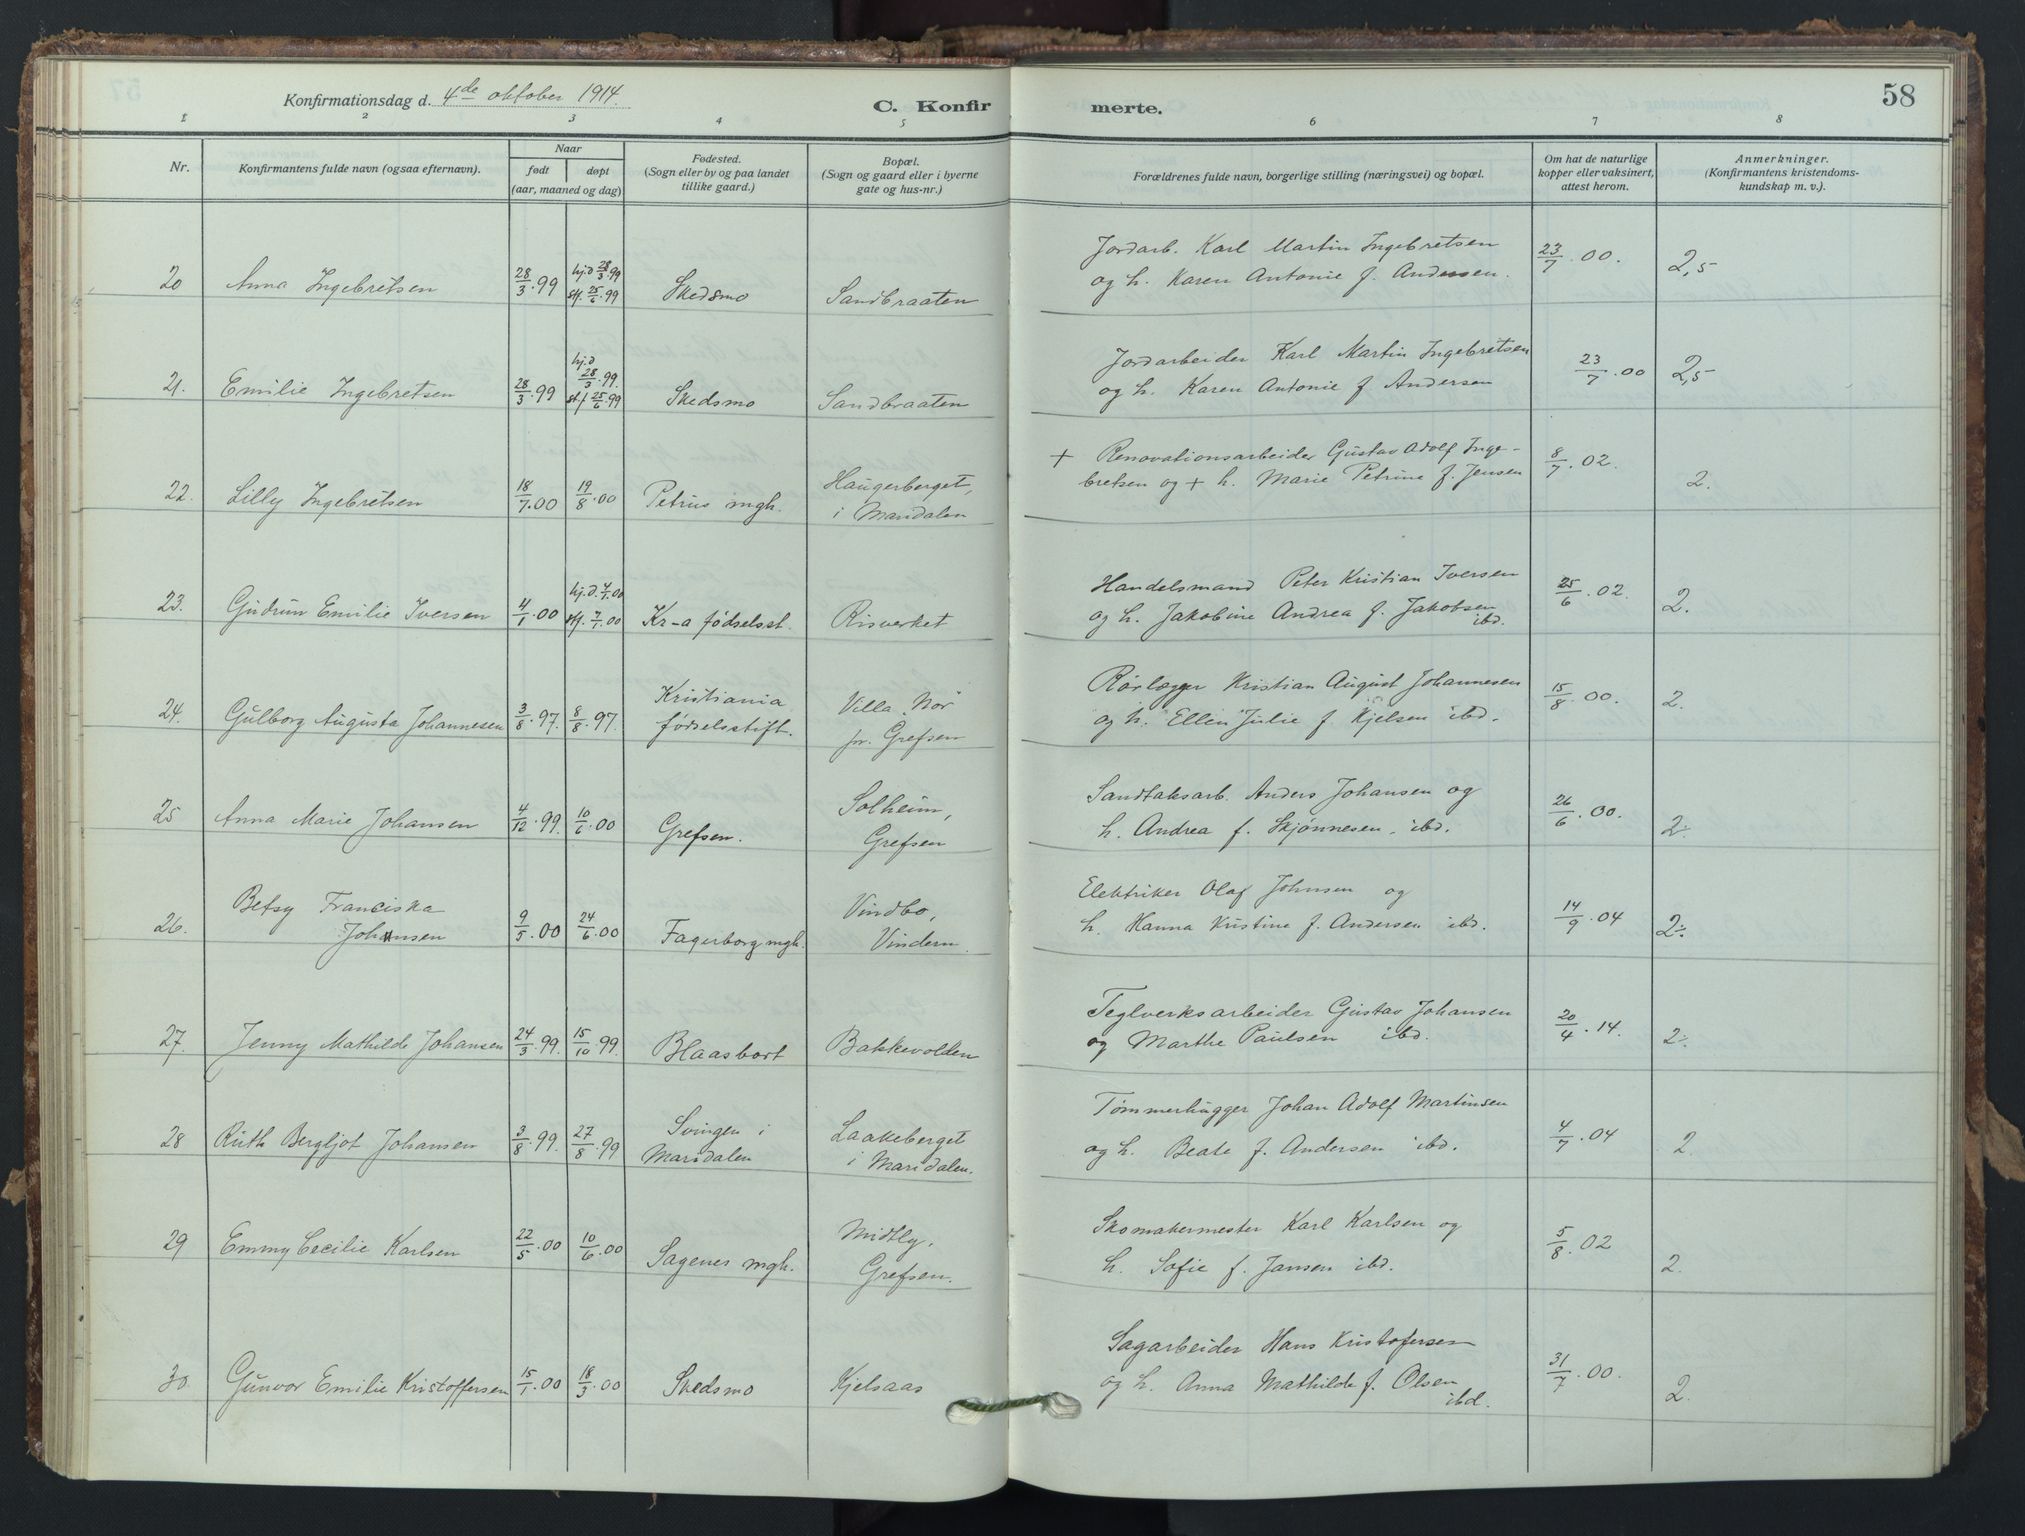 Konfirmationsdag d. 4de oktober 1914.
C. Konfirmerte.
58
1 2 3 4 5 6 7 8
Nr.
Konfirmantens fulde navn (ogsaa efternavn).
Naar
født døpt
(aar, maaned og dag)
Fødested.
(Sogn eller by og paa landet
tillike gaard.)
Bopæl.
(Sogn og gaard eller i byerne
gate og hus-nr.)
Forældrenes fulde navn, borgerlige stilling (næringsvei) og bopæl.
Om hat de naturlige
kopper eller vaksinert,
attest herom.
Anmerkninger.
(Konfirmantens kristendoms-
kundskap m. v.).
20 Anna Ingebretsen 28/3.99 hj.d 28/3.99 stf. 25/6.99 Skedsmo Sandbraaten
Jordarb. Karl Martin Ingebretsen
og h. Karen Antonie f. Andersen. 23/7.00. 2,5
21. Emilie Ingebretsen 28/3.99 hj.d 28/3.99. stf 25/6.99 Skedsmo Sandbraaten
Jordarbeider Karl Martin Ingebretsen
og h. Karen Antonie f Andersen 23/7.00 2,5
22. Lilly Ingebretsen 18/7.00 19/8.00 Petrus mgh. Haugerberget,
i Maridalen
+ Renovationsarbeider Gustav Adolf Inge-
bretsen og + h. Marie Petrine f. Jensen 8/7.02. 2.
23. Gudrun Emilie Iversen 4/1.00 hj.d. 4/1.00 stf. 7/1.00 Kr-a fødselsst. Risverket
Handelsmand Peter Kristian Iversen
og h. Jakobine Andrea f. Jakobsen
ibd. 25/6.02. 2.
24. Gulborg Augusta Johannesen 3/8.97. 8/8.97. Kristiania
fødselsstift. Villa Nor
pr. Grefsen
Rørlægger Kristian August Johannesen
og h. Ellen Julie f. Kjelsen ibd. 15/8.00. 2.
25 Anna Marie Johansen 4/12.99. 10/6.00 Grefsen. Solheim,
Grefsen
Sandtaksarb. Anders Johansen og
h. Andrea f. Skjønnesen. ibd. 26/6.00. 2÷
26. Betsy Franciska
Johnsen 9/5.00 24/6.00 Fagerborg mgh. Vindbo,
Vindern.
Elektriker Olaf Johnsen og
h. Hanna Kristine f. Andersen ibd. 14/9.04 2÷
27. Jenny Mathilde Johansen 24/3.99. 15/10.99. Blaasbort Bakkevolden
Teglverksarbeider Gustav Johansen
og Marthe Paulsen ibd. 20/4.14. 2÷
28 Ruth Bergljot Johansen 3/8.99. 27/8.99 Svingen i
Maridalen Laakeberget
i Maridalen.
Tømmerhugger Johan Adolf Martinsen
og h. Beate f. Andersen ibd. 4/7.04 2.
29 Emmy Cecilie Karlsen 22/5.00 10/6.00 Sagenes mgh. Midtly,
Grefsen.
Skomakermester Karl Karlsen og
h. Sofie f. Jansen ibd. 5/8.02 2.
30 Gunvor Emilie Kristoffersen 15/1.00 18/3.00 Skedsmo Kjelsaas
Sagarbeider Hans Kristofersen
og h. Anna Mathilde f. Olsen
ibd. 31/7.00. 2.